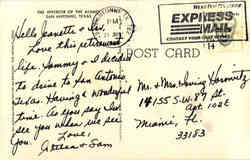 THE INTERIOR OF THE
SAN ANTONIO, TEXAS
PM
EXPRESS
MAIL
POST CARD
Hello Jeanette & Irv,
Love this retirement
life. Sammy & I decided
to drive to San Antonio
Texas. Having a wonderful
time. As you say I'll
see you when we see
You.
Love,
& Sam
Mr. & Mrs. Irving Horowitz
14155 S.W. 87 St.
Apt. 102E
Miami, Fl
33183